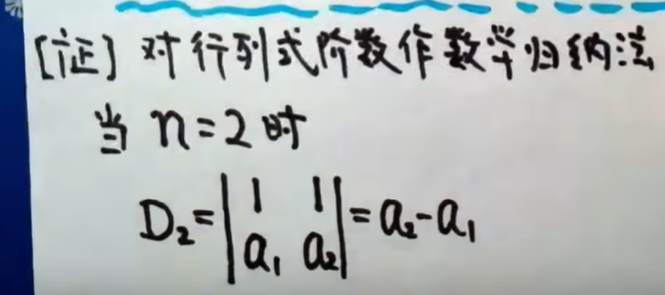 [证] 对行列式阶数作数学归纳法
当 n=2 时
D₂=|1 1; a₁ a₂|=a₂-a₁